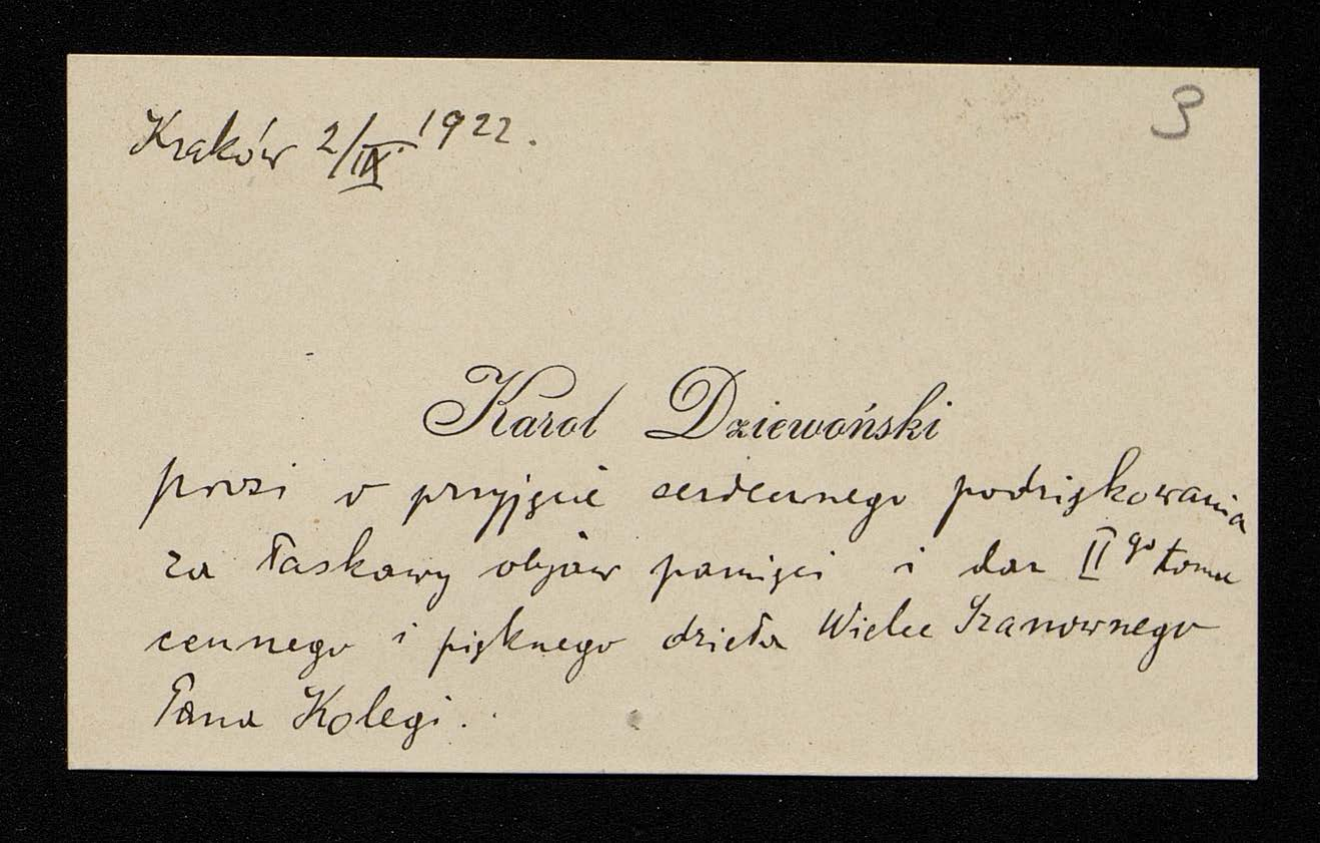 3
Kraków 2/IX 1922.
Karol Dziewoński
prosi o przyjęcie serdecznego podziękowania
za łaskawy objaw pamięci i dar II go tomu
cennego i pięknego dzieła Wielce Szanownego
Pana Kolegi.